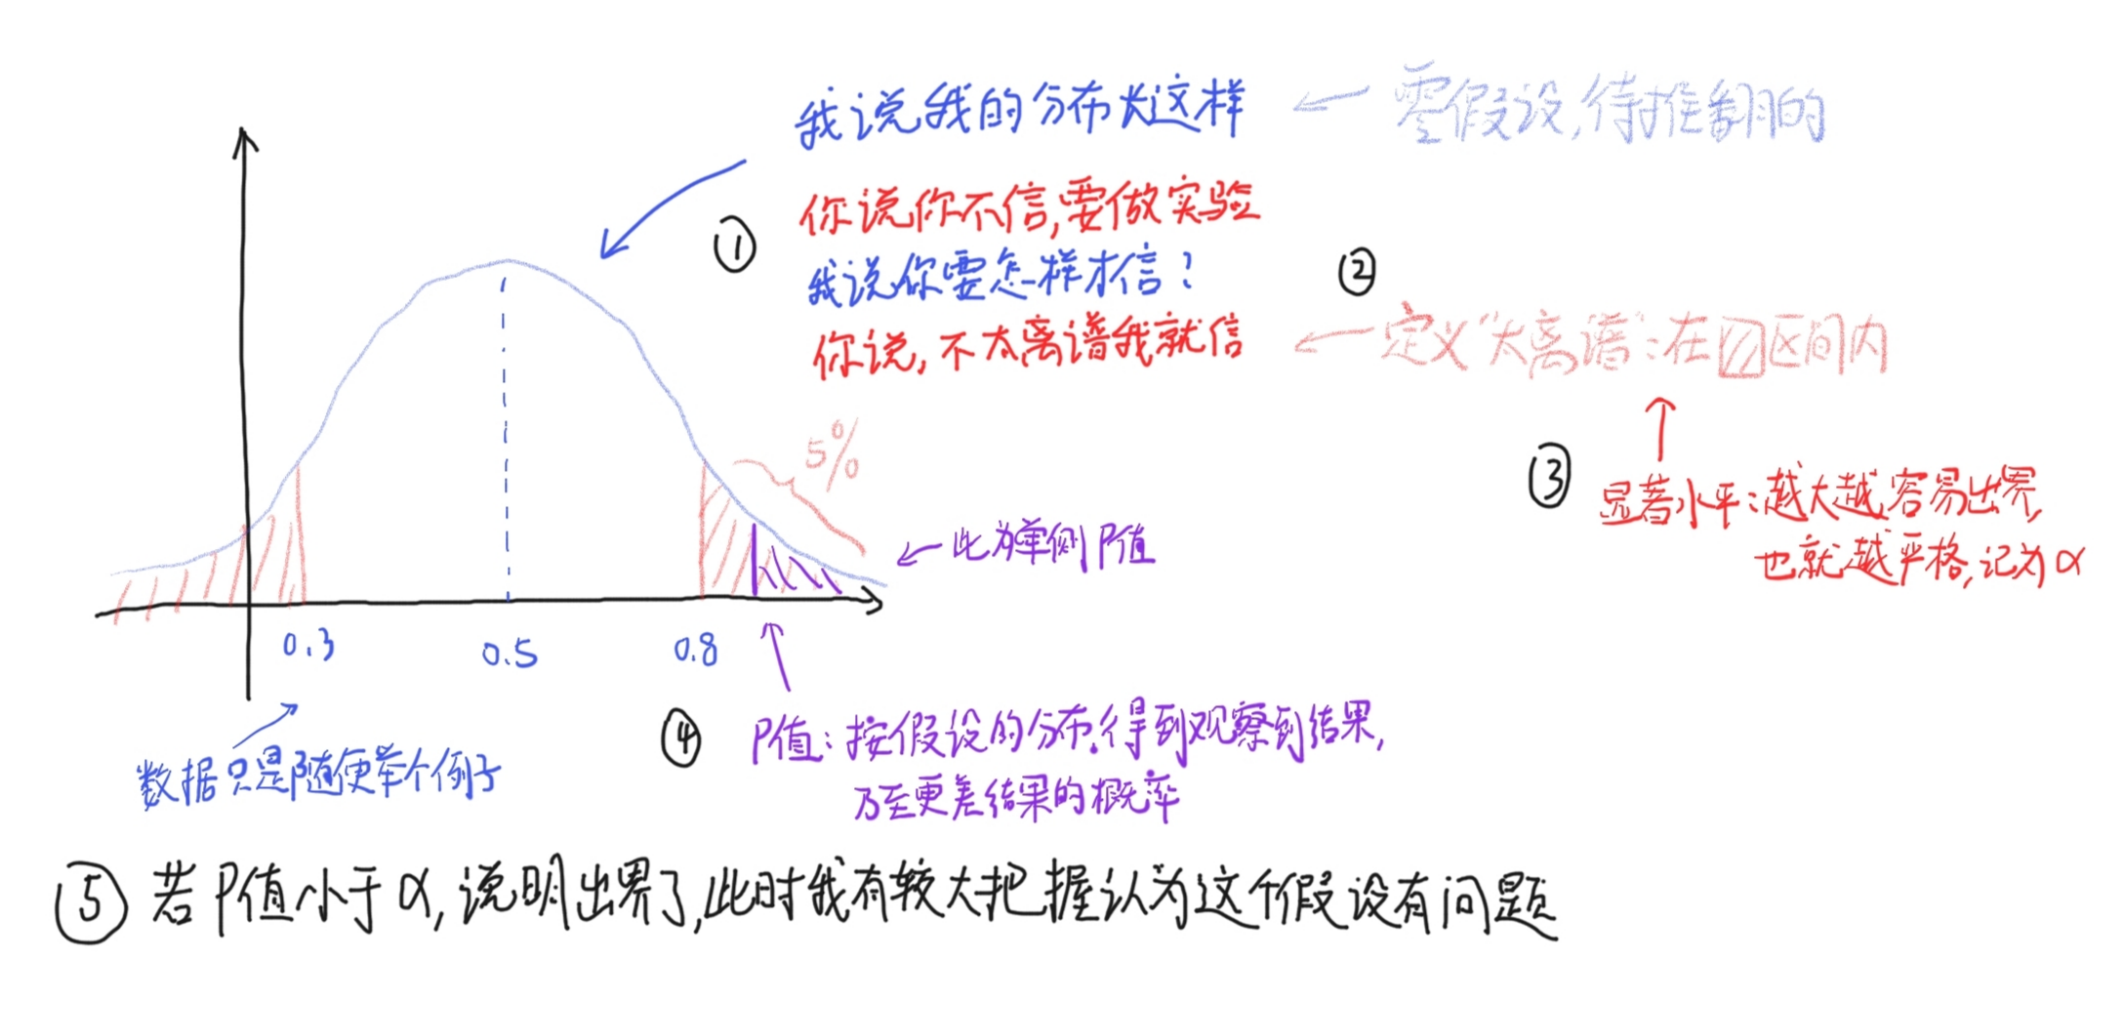 我说我的分布长这样 ← 零假设,待推翻的
① 你说你不信,要做实验
我说你要怎样才信?
你说,不太离谱我就信
② ← 定义"太离谱":在▨区间内
③ 显著水平:越大越容易出界,
也就越严格,记为α
5%
← 此为单侧P值
0.3
0.5
0.8
数据只是随便举个例子
④ P值:按假设的分布,得到观察到结果,
乃至更差结果的概率
⑤ 若P值小于α,说明出界了,此时我有较大把握认为这个假设有问题